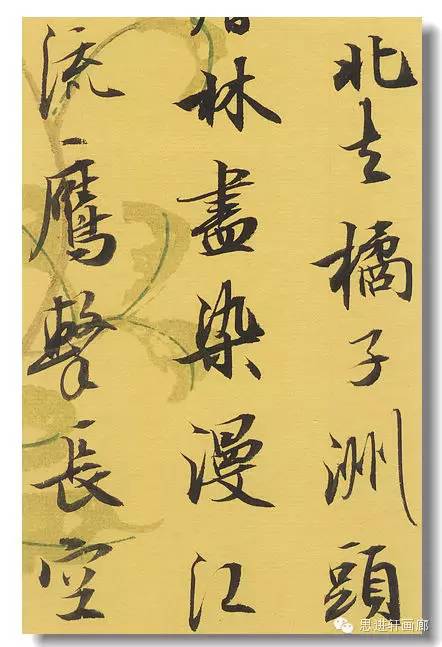 北去橘子洲頭
林盡染漫江
流鷹擊長空
思进轩画廊